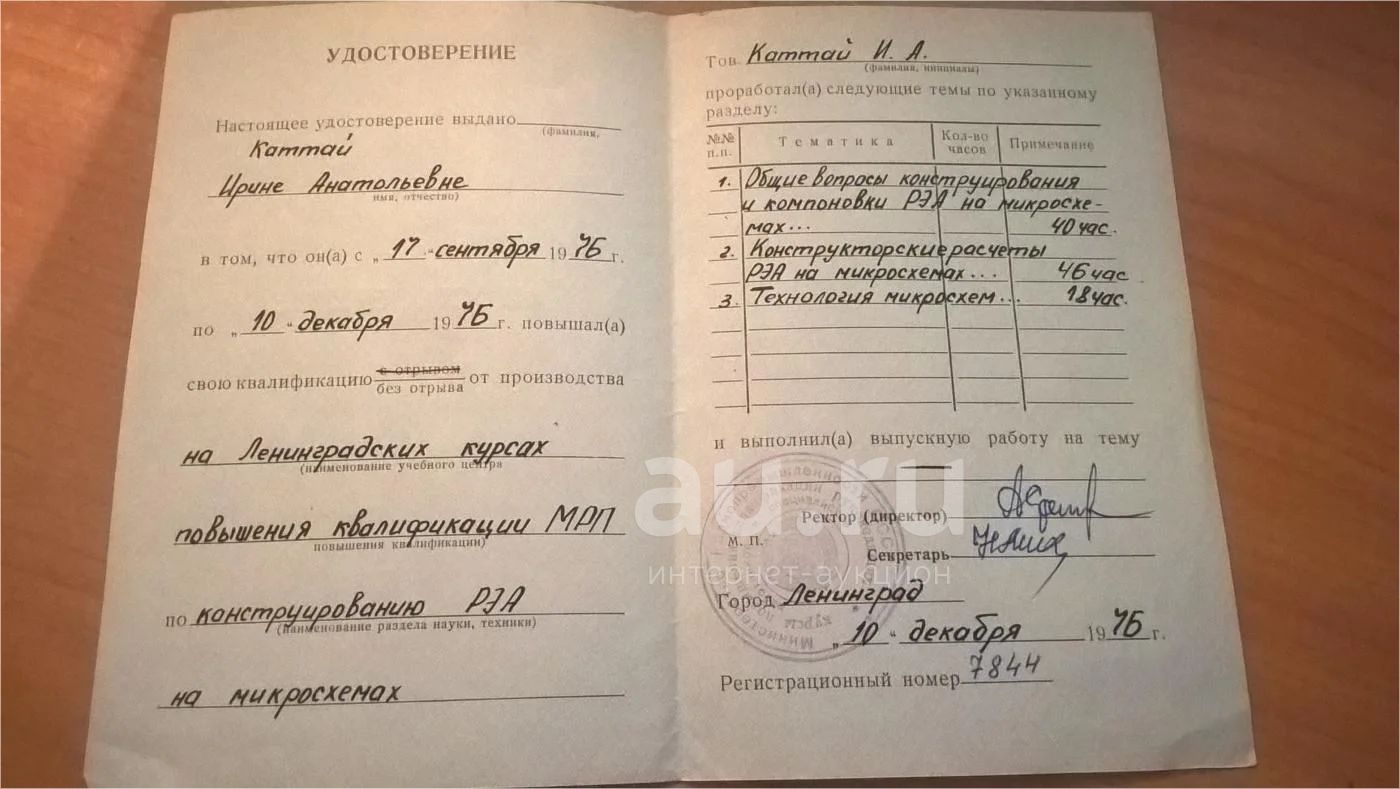 УДОСТОВЕРЕНИЕ
Настоящее удостоверение выдано
(фамилия,
Каттай
Ирине Анатольевне
имя, отчество)
в том, что он(а) с „17"сентября 1976 г.
по „10"декабря 1976 г. повышал(а)
свою квалификацию с отрывом
без отрыва от производства
на Ленинградских курсах
(наименование учебного центра
повышения квалификации МРП
повышения квалификации)
по конструированию РЭА
(наименование раздела науки, техники)
на микросхемах
Тов. Каттай И. А.
(фамилия, инициалы)
проработал(а) следующие темы по указанному
разделу:
№№ п.п. Тематика Кол-во часов Примечание
1. Общие вопросы конструирования
и компоновки РЭА на микросхе-
мах... 40 час.
2. Конструкторские расчеты
РЭА на микросхемах... 46 час
3. Технология микросхем... 18 час.
и выполнил(а) выпускную работу на тему
—
Ректор (директор)
М. П.
Секретарь
Город Ленинград
„10" декабря 1976 г.
Регистрационный номер 7844
au.ru
интернет-аукцион